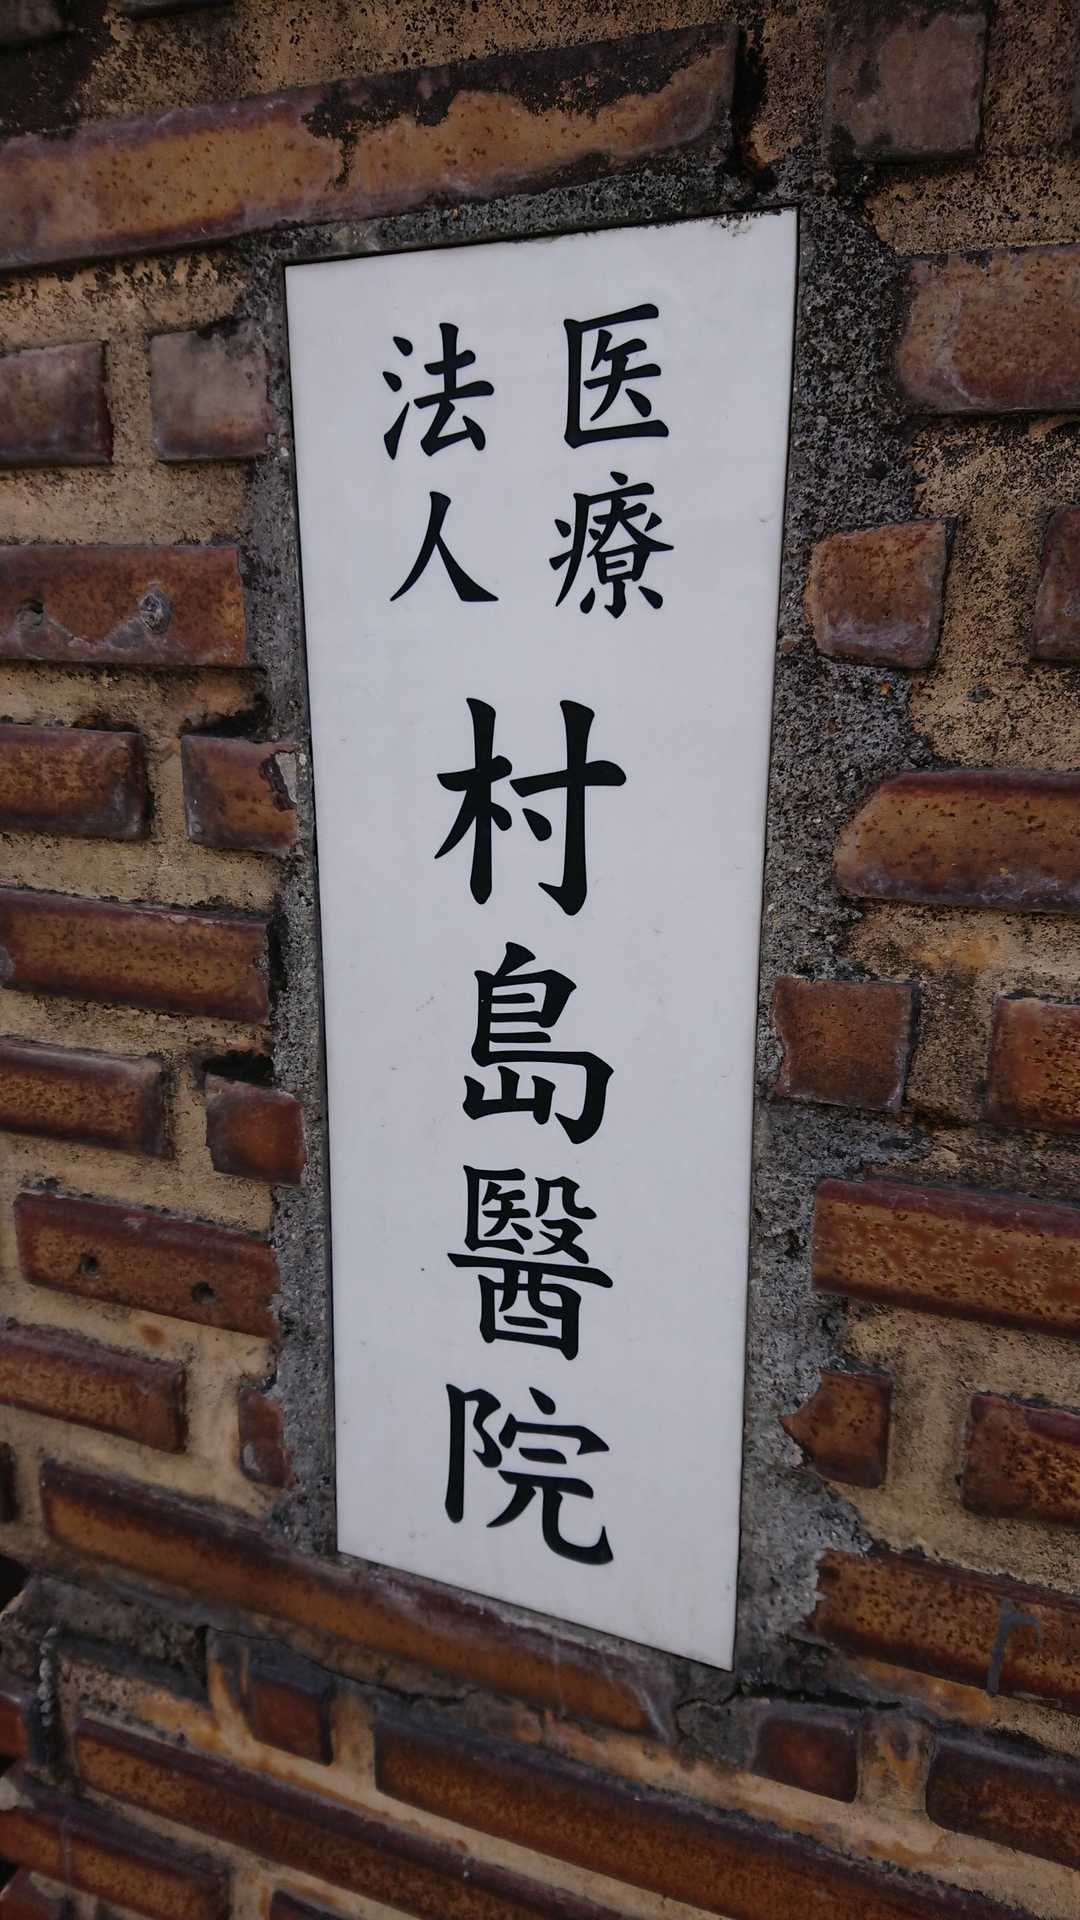 医療
法人
村島醫院